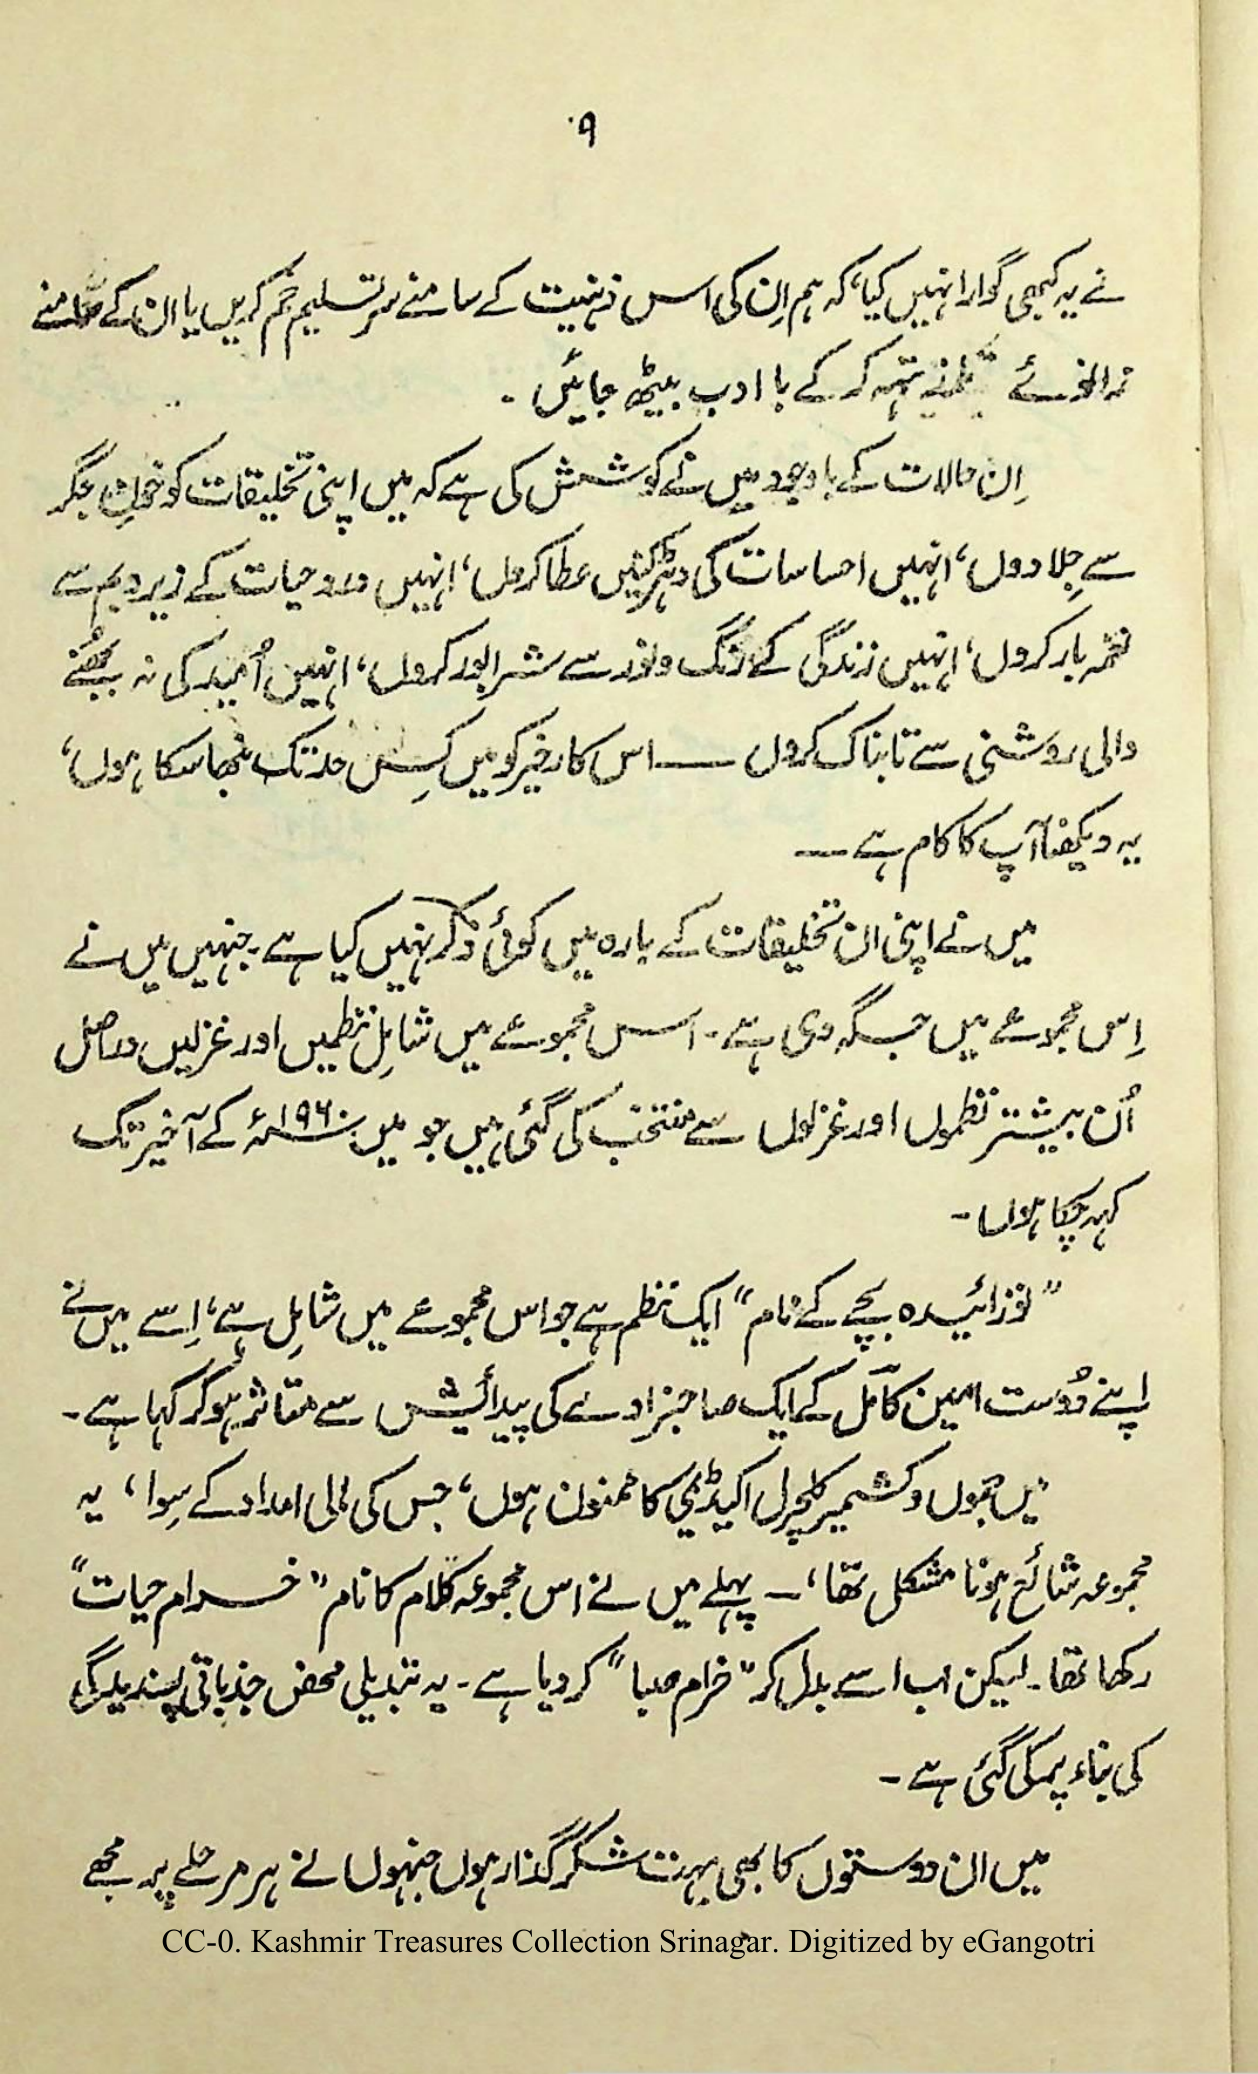 ۹
نے یہ کبھی گوارا نہیں کیا، کہ ہم اِن کی اس ذہنیت کے سامنے سرِ تسلیم خم کریں یا ان کے سامنے
زانوئے تہہ کر کے با ادب بیٹھ جائیں ۔
اِن حالات کے باوجود میں نے کوشش کی ہے کہ میں اپنی تخلیقات کو خونِ جگر
سے جِلا دوں، انہیں احساسات کی دھڑکنیں عطا کروں، انہیں درد و حیات کے زیر و بم سے
نغمہ بار کروں، انہیں زندگی کے رنگ و نور سے شرابور کروں، انہیں اُمید کی نہ بجھنے
والی روشنی سے تابناک کروں — اس کارِ خیر کو میں کِس حد تک نبھا سکا ہوں،
یہ دیکھنا آپ کا کام ہے —
میں نے اپنی ان تخلیقات کے بارہ میں کوئی ذکر نہیں کیا ہے۔ جنہیں میں نے
اِس مجموعے میں جگہ دی ہے۔ اس مجموعے میں شامِل نظمیں اور غزلیں دراصل
اُن بیشتر نظموں اور غزلوں سے منتخب کی گئی ہیں جو میں ۱۹۶۰ء کے آخیر تک
کہہ چکا ہوں ۔
”نوزائیدہ بچے کے نام“ ایک نظم ہے جو اس مجموعے میں شامِل ہے، اِسے میں نے
اپنے دُوست امین کامل کے ایک صاحبزادے کی پیدائش سے متاثر ہو کر کہا ہے۔
میں جموں و کشمیر کلچرل اکیڈیمی کا ممنون ہوں، جس کی مالی امداد کے سِوا، یہ
مجموعہ شائع ہونا مشکل تھا، — پہلے میں نے اس مجموعہ کلام کا نام ”خرام حیات“
رکھا تھا۔ لیکن اب اسے بدل کر ”خرام صبا“ کر دیا ہے۔ یہ تبدیلی محض جذباتی پسندیدگی
کی بناء پر کی گئی ہے ۔
میں ان دوستوں کا بھی بہت شکر گذار ہوں جنہوں نے ہر مرحلے پر مجھے
CC-0. Kashmir Treasures Collection Srinagar. Digitized by eGangotri